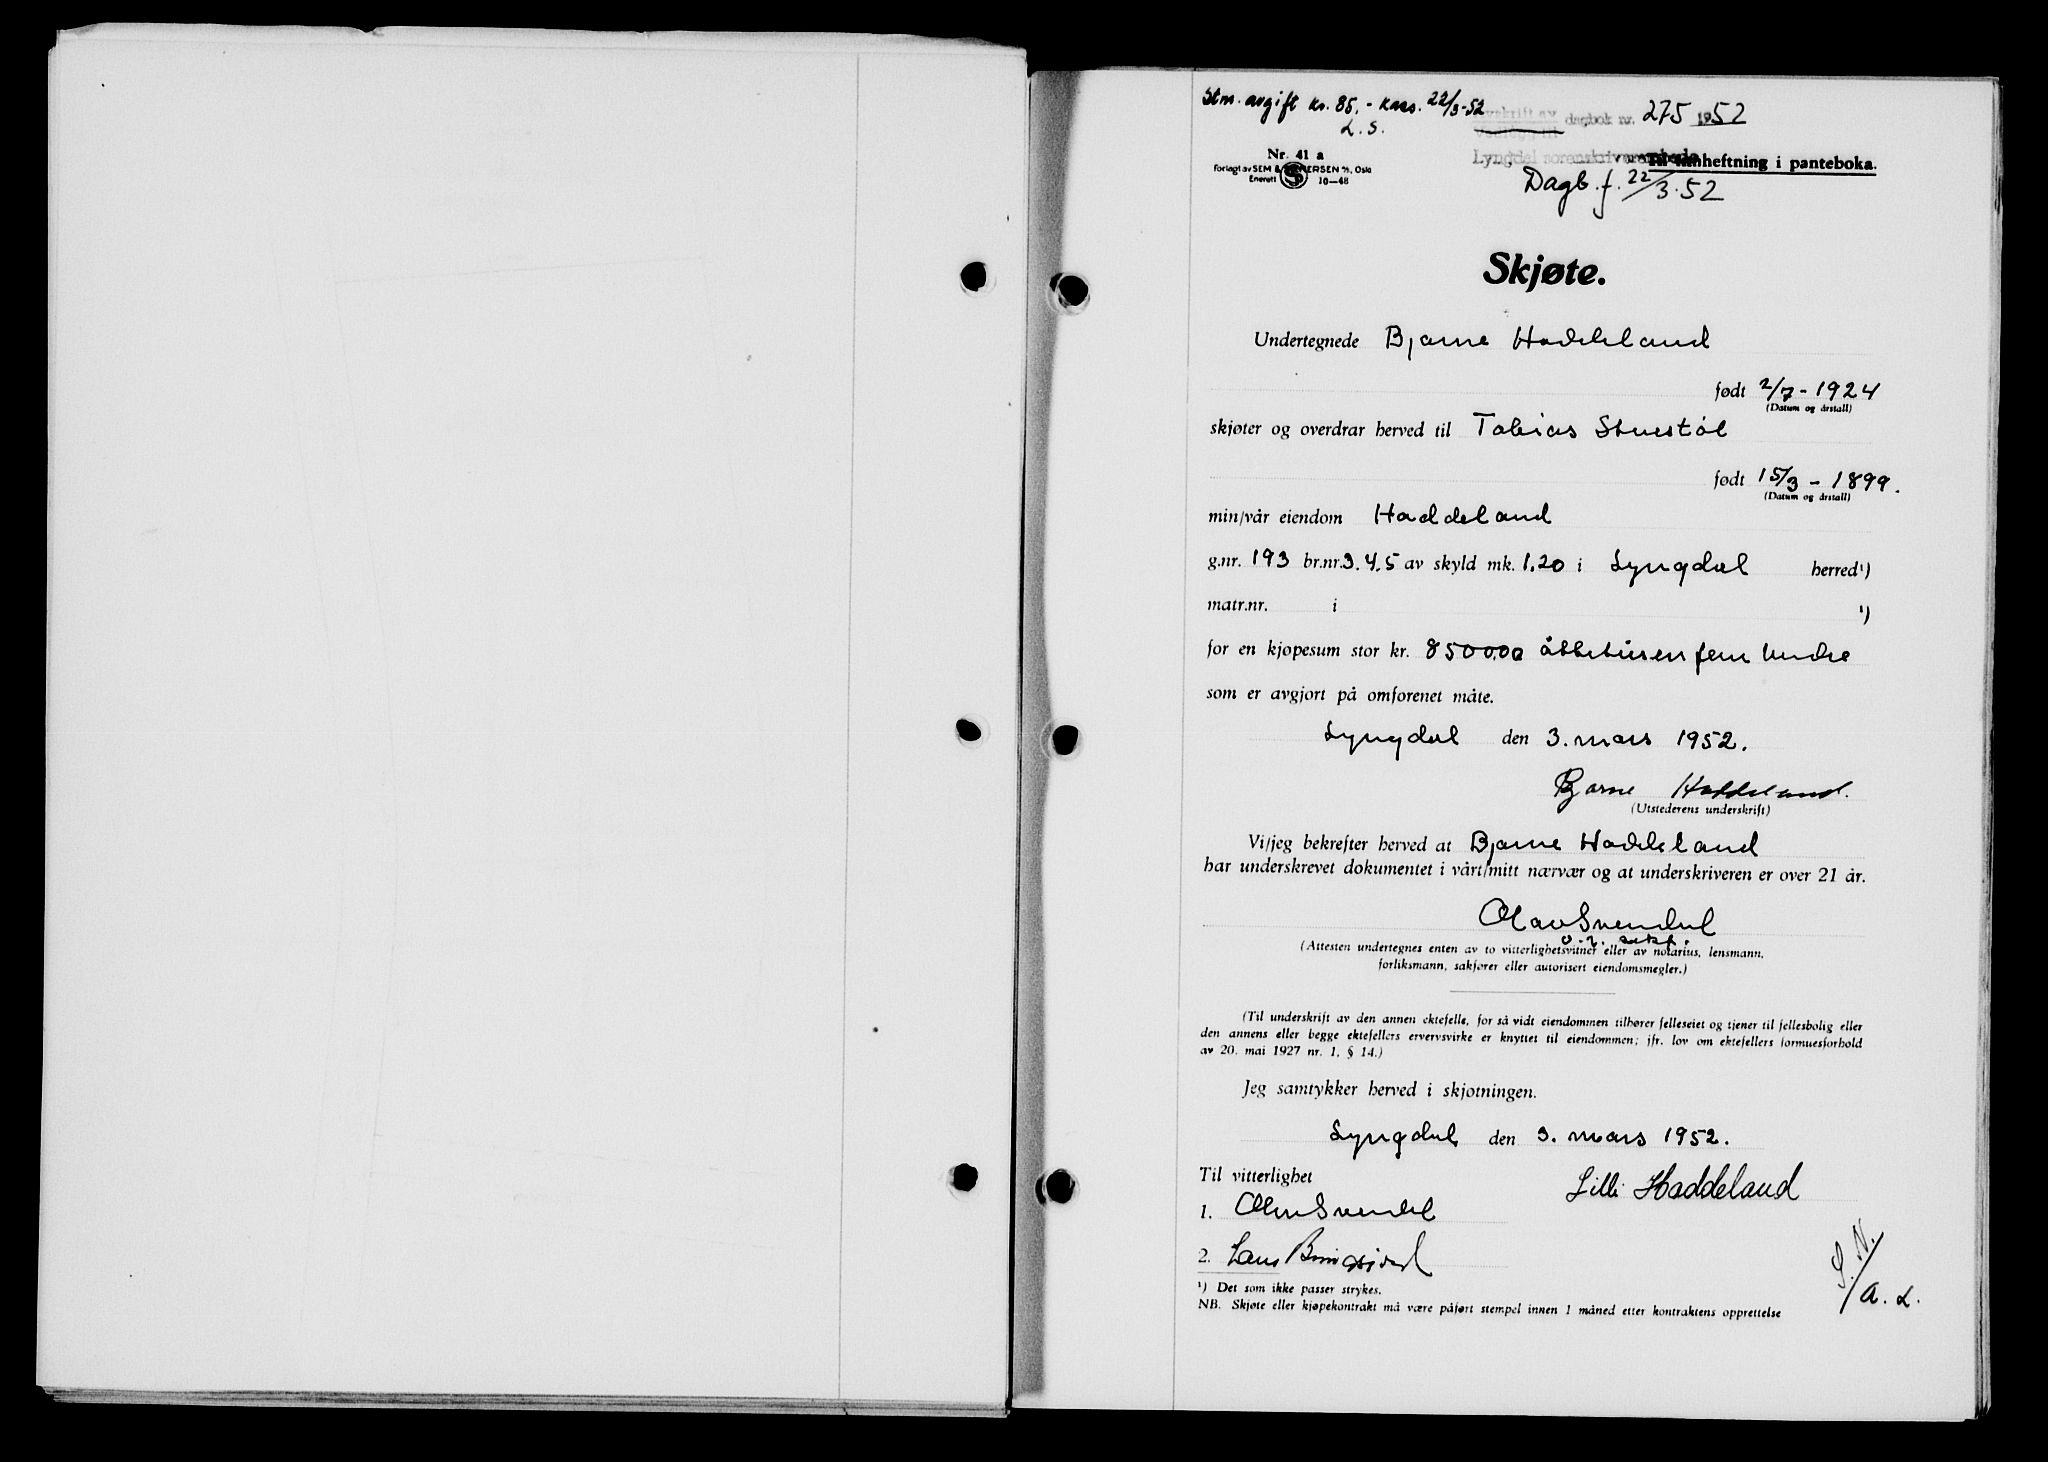 Stm. avgift kr. 85,- kass. 22/3-52
L. S.
Avskrift av dagbok nr. 275 1952
Lyngdal sorenskriverembede
Til innheftning i panteboka.
Nr. 41 a
Forlagt av SEM & STENERSEN A/S, Oslo
Enerett 10—48
Dagb. f. 22/3.52
Skjøte.
Undertegnede Bjarne Haddeland
født 2/7-1924
(Datum og årstall)
skjøter og overdrar herved til Tobias Stuestøl
født 15/3-1899.
(Datum og årstall)
min/vår eiendom Haddeland
g.nr. 193 br.nr. 3.4.5 av skyld mk. 1.20 i Lyngdal herred¹)
matr.nr. i ¹)
for en kjøpesum stor kr. 8500.00 åttetusen fem hundre
som er avgjort på omforenet måte.
Lyngdal den 3. mars 1952.
Bjarne Haddeland.
(Utstederens underskrift)
Vi/jeg bekrefter herved at Bjarne Haddeland
har underskrevet dokumentet i vårt/mitt nærvær og at underskriveren er over 21 år.
Olav Svendal
o.r. sakf.
(Attesten undertegnes enten av to vitterlighetsvitner eller av notarius, lensmann,
forliksmann, sakfører eller autorisert eiendomsmegler.)
(Til underskrift av den annen ektefelle, for så vidt eiendommen tilhører felleseiet og tjener til fellesbolig eller
den annens eller begge ektefellers ervervsvirke er knyttet til eiendommen; jfr. lov om ektefellers formuesforhold
av 20. mai 1927 nr. 1, § 14.)
Jeg samtykker herved i skjøtningen.
Lyngdal den 3. mars 1952.
Til vitterlighet
Lilli Haddeland
1. Olav Svendal
2. Lars
¹) Det som ikke passer strykes.
NB. Skjøte eller kjøpekontrakt må være påført stempel innen 1 måned etter kontraktens opprettelse
S. N./A. L.